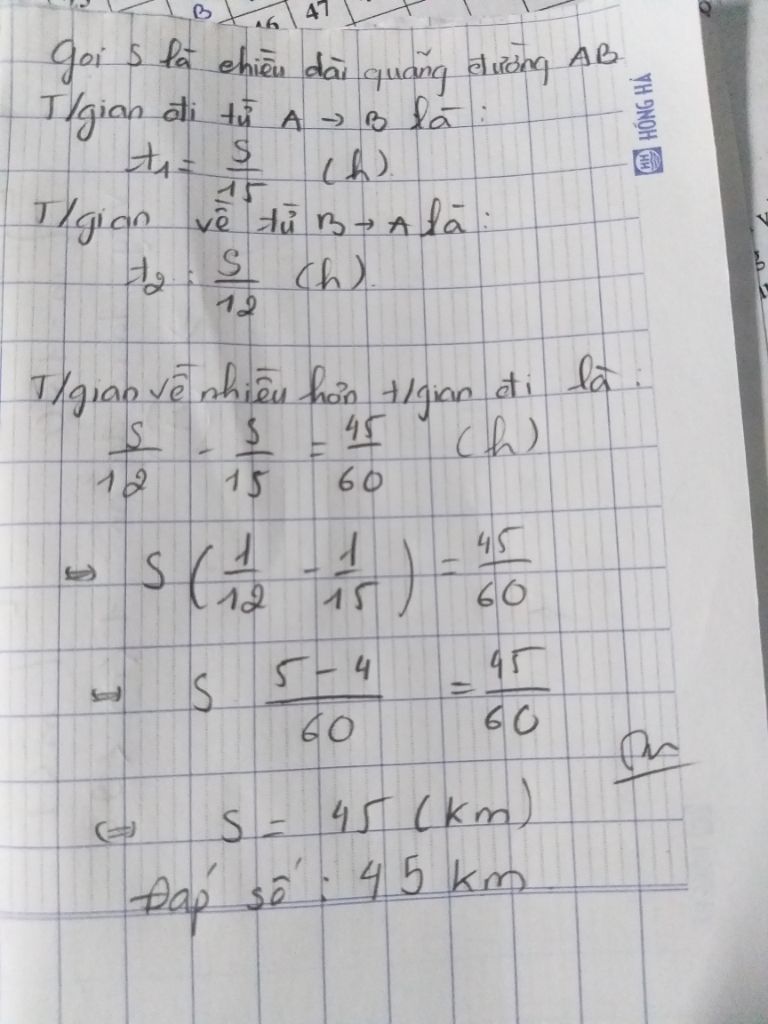 B
16 47
Gọi S là chiều dài quãng đường AB
T/gian đi từ A → B là:
t1 = S/15 (h)
T/gian về từ B → A là:
t2 : S/12 (h)
T/gian về nhiều hơn t/gian đi là:
S/12 - S/15 = 45/60 (h)
⇔ S (1/12 - 1/15) = 45/60
⇔ S 5-4/60 = 45/60
⇔ S = 45 (km)
Đáp số: 45 km
HH HỒNG HÀ